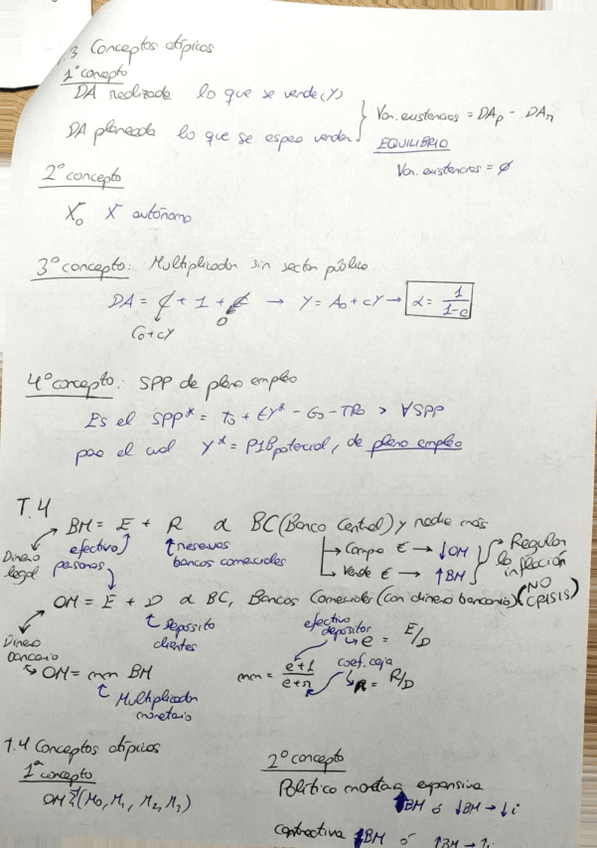 T.3 Conceptos atípicos
1º concepto
DA realizada lo que se vende (Y)
DA planeada lo que se espera vender
Var. existencias = DAp - DAr
EQUILIBRIO
Var. existencias = ∅
2º concepto
X̄₀ X̄ autónomo
3º concepto: Multiplicador sin sector público
DA = C + I + G → Y = A₀ + cY → α = 1/(1-c)
C₀+cY
0
4º concepto: SPP de pleno empleo
Es el SPP* = T₀ + tY* - G₀ - TR₀ > ∀SPP
para el cual Y* = PIB potencial, de pleno empleo
T.4
BM = E + R α BC (Banco Central) y nadie más
Dinero legal
efectivo personas
reservas bancos comerciales
Compra € → ↓OM
Vende € → ↑BM
Regular la inflación
(NO CRISIS)
OM = E + D α BC, Bancos Comerciales (con dinero bancario)
Dinero bancario
depósito clientes
efectivo depósitos
e = E/D
OM = mm BM
Multiplicador monetario
mm = (e+1)/(e+r)
coef. caja
R = R/D
T.4 Conceptos atípicos
1º concepto
OM (M₀, M₁, M₂, M₃)
2º concepto
Política monetaria expansiva
↑BM ó ↓BM → ↓i
contractiva ↓BM ó ↑BM → ↑i